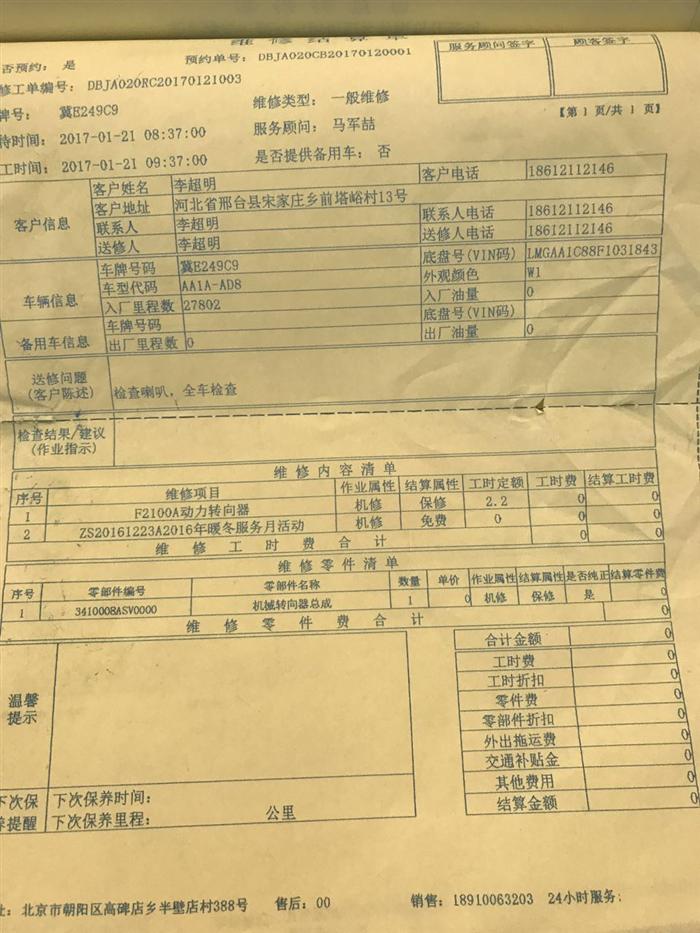 维修结算单
否预约：是 预约单号：DBJA020CB20170120001 服务顾问签字 顾客签字
修工单编号：DBJA020RC20170121003
牌号：冀E249C9 维修类型：一般维修 【第 1 页/共 1 页】
待时间：2017-01-21 08:37:00 服务顾问：马军喆
工时间：2017-01-21 09:37:00 是否提供备用车：否
客户信息 客户姓名 李超明 客户电话 18612112146
客户地址 河北省邢台县宋家庄乡前塔峪村13号
联系人 李超明 联系人电话 18612112146
送修人 李超明 送修人电话 18612112146
车辆信息 车牌号码 冀E249C9 底盘号(VIN码) LMGAA1C88F1031843
车型代码 AA1A-AD8 外观颜色 W1
入厂里程数 27802 入厂油量 0
备用车信息 车牌号码 底盘号(VIN码)
出厂里程数 0 出厂油量 0
送修问题
(客户陈述) 检查喇叭，全车检查
检查结果/建议
(作业指示)
维修内容清单
序号 维修项目 作业属性 结算属性 工时定额 工时费 结算工时费
1 F2100A动力转向器 机修 保修 2.2 0 0
2 ZS20161223A2016年暖冬服务月活动 机修 免费 0 0 0
维修工时费合计 0 0
维修零件清单
序号 零部件编号 零部件名称 数量 单价 作业属性 结算属性 是否纯正 结算零件费
1 3410008ASV0000 机械转向器总成 1 0 机修 保修 是 0
维修零件费合计 0
合计金额 0
工时费 0
工时折扣 0
零件费 0
零部件折扣 0
外出拖运费 0
交通补贴金 0
其他费用 0
结算金额 0
温馨
提示
下次保 下次保养时间：
养提醒 下次保养里程： 公里
址：北京市朝阳区高碑店乡半壁店村388号 售后：00 销售：18910063203 24小时服务：